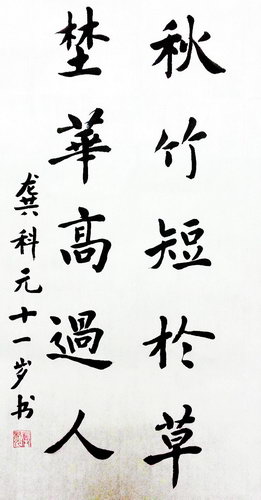 秋竹短於草
埜華高過人
龚科元十一岁书